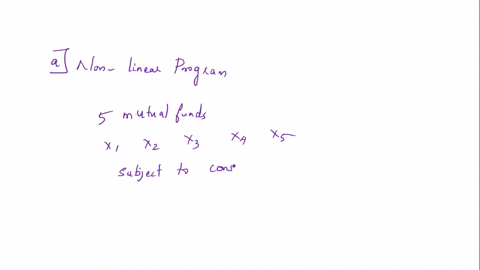 a] Non-linear Program
5 mutual funds
x1 x2 x3 x4 x5
subject to cons